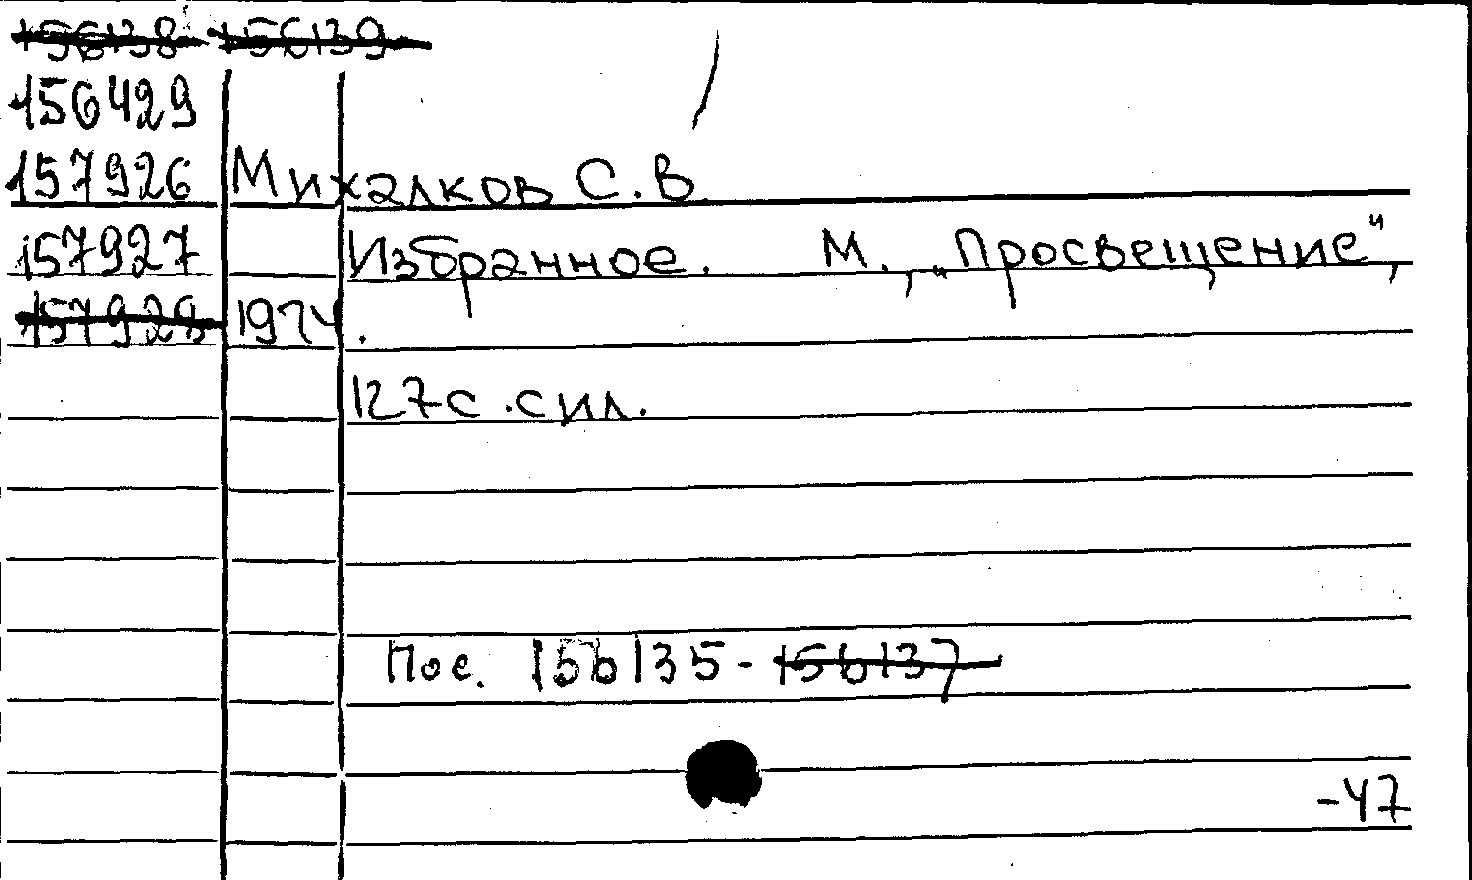 156138 156139
156429
157926 Михалков С.В.
157927 Избранное. М., „Просвещение“,
157928 1974.
127с. с ил.
Пос. 156135 - 156137
-47